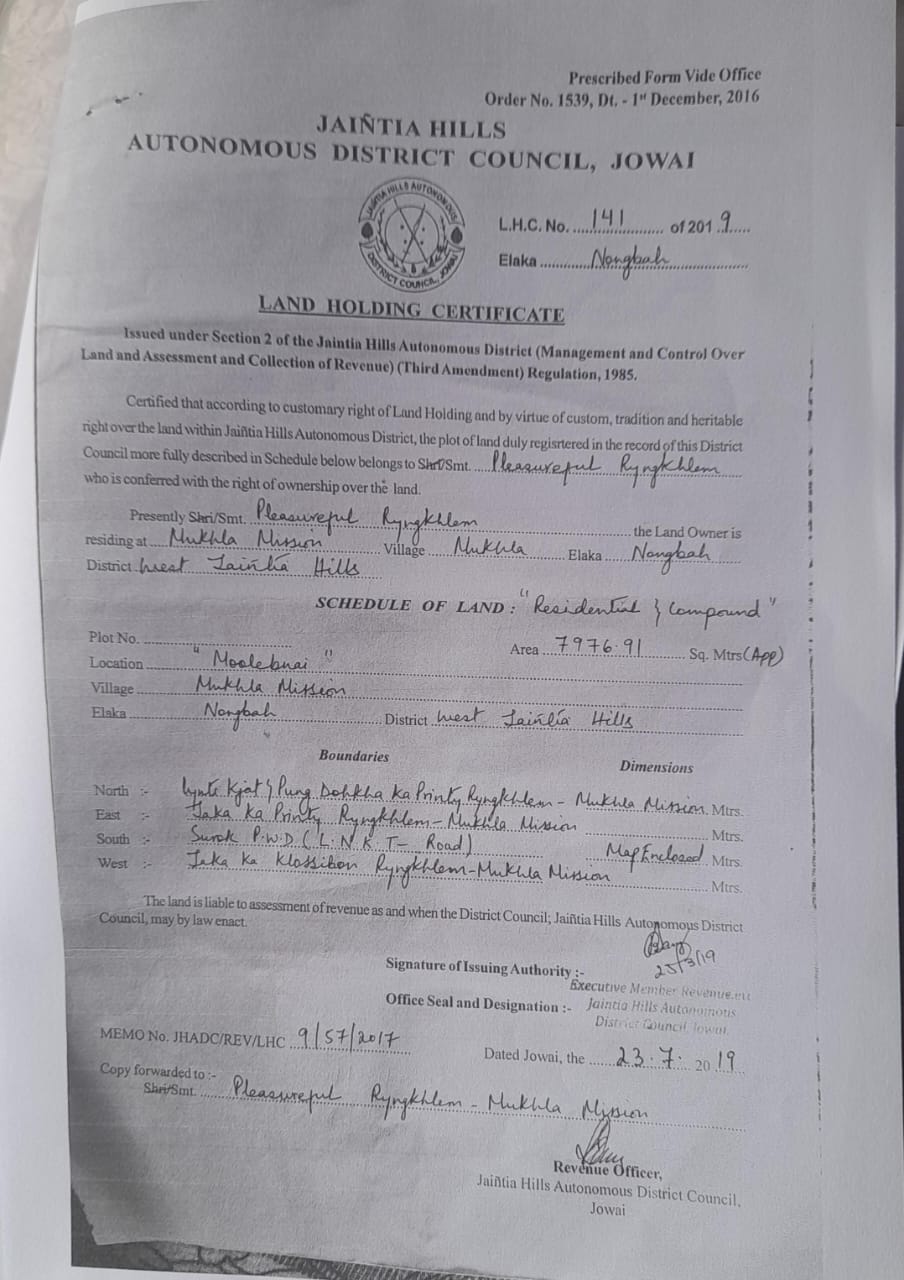 Prescribed Form Vide Office
Order No. 1539, Dt. - 1st December, 2016
JAIÑTIA HILLS
AUTONOMOUS DISTRICT COUNCIL, JOWAI
JAIÑTIA HILLS AUTONOMOUS
DISTRICT COUNCIL, JOWAI
L.H.C. No. 141 of 2019
Elaka Nongbah
LAND HOLDING CERTIFICATE
Issued under Section 2 of the Jaintia Hills Autonomous District (Management and Control Over
Land and Assessment and Collection of Revenue) (Third Amendment) Regulation, 1985.
Certified that according to customary right of Land Holding and by virtue of custom, tradition and heritable
right over the land within Jaiñtia Hills Autonomous District, the plot of land duly regisrtered in the record of this District
Council more fully described in Schedule below belongs to Shri/Smt. Pleasureful Ryngkhlem
who is conferred with the right of ownership over the land.
Presently Shri/Smt. Pleasureful Ryngkhlem the Land Owner is
residing at Mukhla Mission Village Mukhla Elaka Nongbah
District West Jaiñtia Hills
SCHEDULE OF LAND : "Residential & Compound"
Plot No. Area 7976.91 Sq. Mtrs (App)
Location "Moolebnai"
Village Mukhla Mission
Elaka Nongbah District West Jaiñtia Hills
Boundaries Dimensions
North :- Lynti Kjat & Pung Dohkha Ka Printy Ryngkhlem - Mukhla Mission Mtrs.
East :- Jaka Ka Printy Ryngkhlem - Mukhla Mission Mtrs.
South :- Surok P.W.D (L.N.K.T - Road) Map Enclosed Mtrs.
West :- Jaka Ka Klossibon Ryngkhlem - Mukhla Mission Mtrs.
The land is liable to assessment of revenue as and when the District Council; Jaiñtia Hills Autonomous District
Council, may by law enact.
Signature of Issuing Authority :- 23/3/19
Executive Member Revenue.etc
Office Seal and Designation :- Jaintia Hills Autonomous
District Council Jowai.
MEMO No. JHADC/REV/LHC 9/57/2017
Dated Jowai, the 23.7. 2019
Copy forwarded to :-
Shri/Smt. Pleasureful Ryngkhlem - Mukhla Mission
Revenue Officer,
Jaiñtia Hills Autonomous District Council,
Jowai